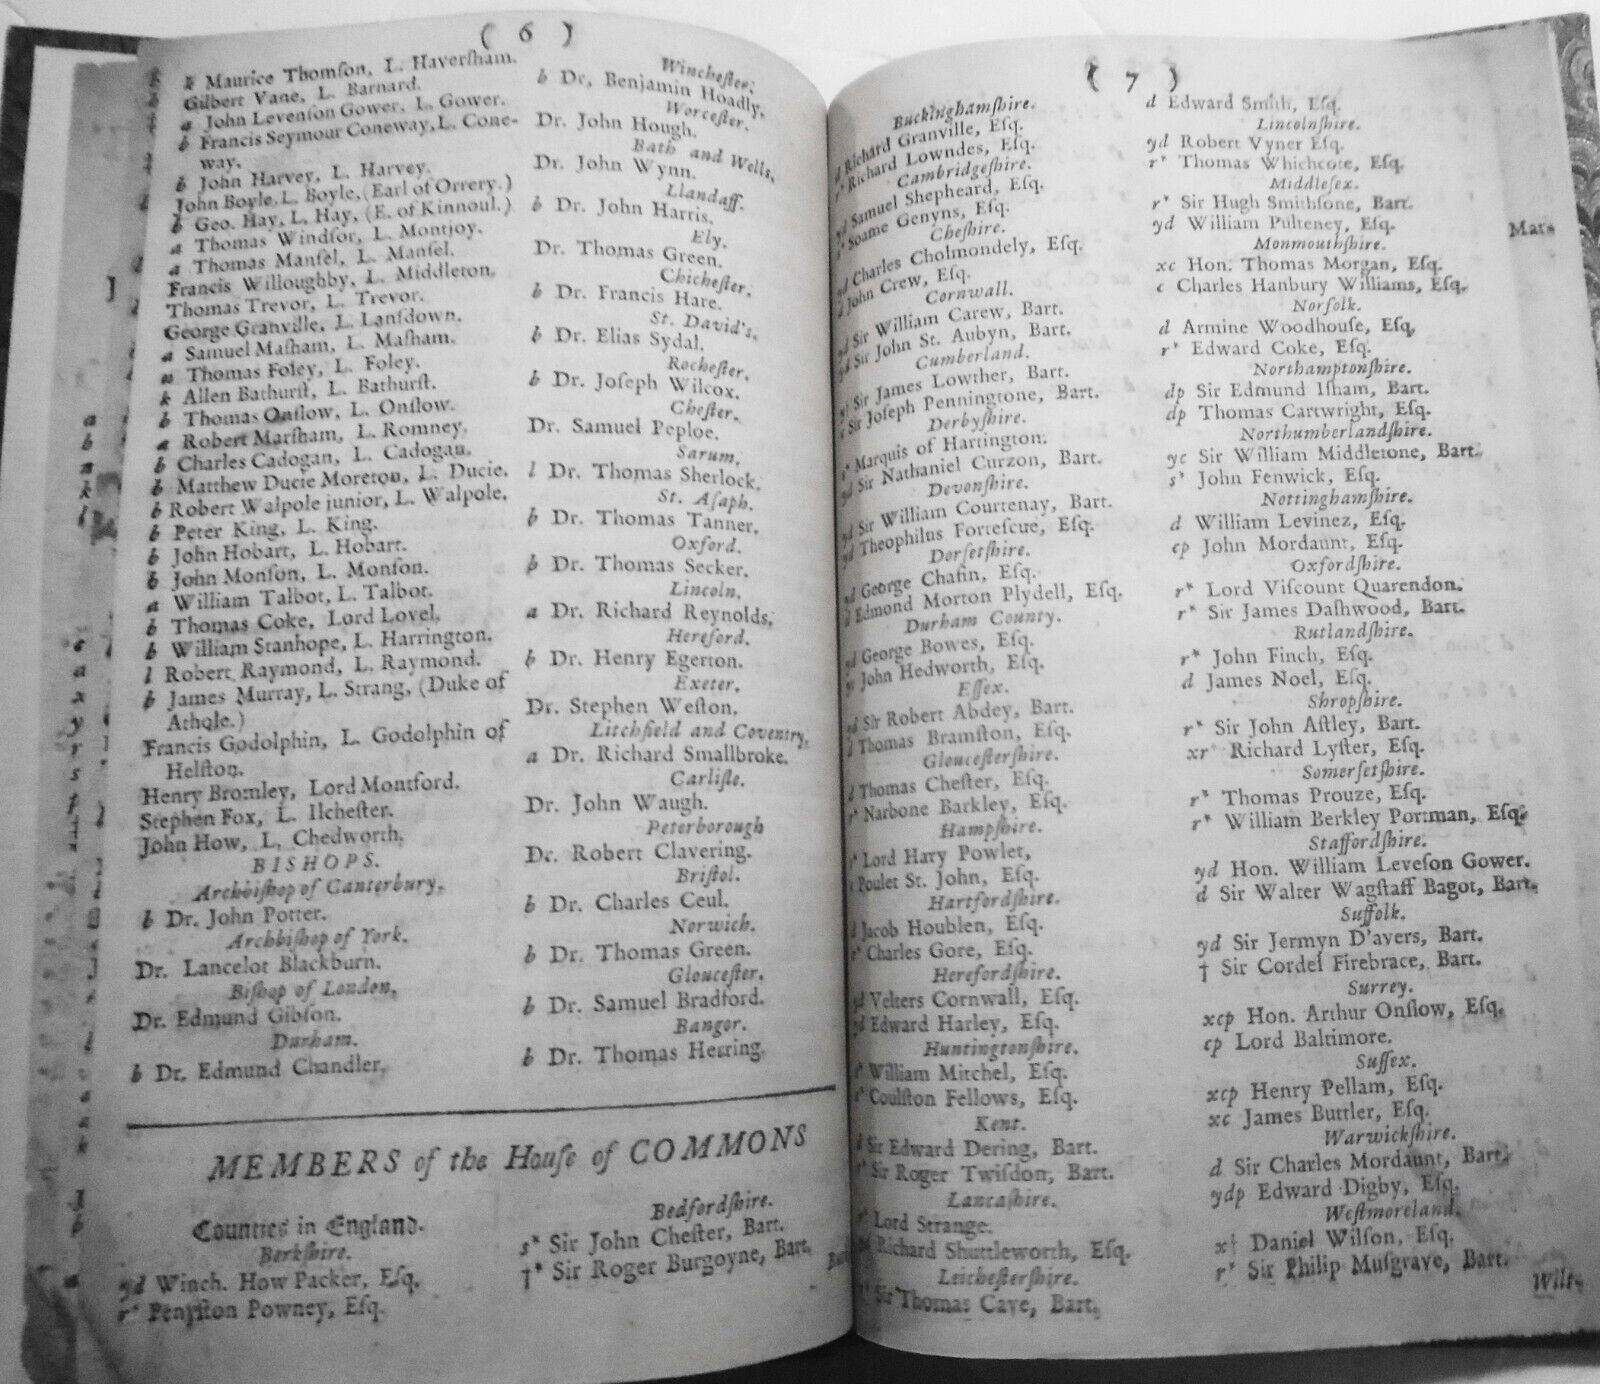 ( 6 )
k Maurice Thomſon, L. Haverſham.
Gilbert Vane, L. Barnard.
a John Levenſon Gower, L. Gower.
b Francis Seymour Coneway, L. Cone-
way.
b John Harvey, L. Harvey.
John Boyle, L. Boyle, (Earl of Orrery.)
b Geo. Hay, L. Hay, (E. of Kinnoul.)
a Thomas Windſor, L. Montjoy.
a Thomas Manſel, L. Manſel.
Francis Willoughby, L. Middleton.
Thomas Trevor, L. Trevor.
George Granville, L. Lanſdown.
a Samuel Maſham, L. Maſham.
Thomas Foley, L. Foley.
k Allen Bathurſt, L. Bathurſt.
b Thomas Onſlow, L. Onſlow.
a Robert Marſham, L. Romney.
b Charles Cadogan, L. Cadogan.
b Matthew Ducie Moreton, L. Ducie.
b Robert Walpole junior, L. Walpole.
b Peter King, L. King.
b John Hobart, L. Hobart.
b John Monſon, L. Monſon.
a William Talbot, L. Talbot.
b Thomas Coke, Lord Lovel.
b William Stanhope, L. Harrington.
l Robert Raymond, L. Raymond.
b James Murray, L. Strang, (Duke of
Athole.)
Francis Godolphin, L. Godolphin of
Helſton.
Henry Bromley, Lord Montford.
Stephen Fox, L. Ilcheſter.
John How, L. Chedworth.
BISHOPS.
Archbiſhop of Canterbury.
b Dr. John Potter.
Archbiſhop of York.
Dr. Lancelot Blackburn.
Biſhop of London,
Dr. Edmund Gibſon.
Durham.
b Dr. Edmund Chandler.
Wincheſter.
b Dr, Benjamin Hoadly.
Worceſter.
Dr. John Hough.
Bath and Wells,
Dr. John Wynn.
Llandaff.
b Dr. John Harris.
Ely.
Dr. Thomas Green.
Chicheſter.
b Dr. Francis Hare.
St. David's.
b Dr. Elias Sydal.
Rocheſter.
b Dr. Joſeph Wilcox.
Cheſter.
Dr. Samuel Peploe.
Sarum.
l Dr. Thomas Sherlock.
St. Aſaph.
b Dr. Thomas Tanner.
Oxford.
b Dr. Thomas Secker.
Lincoln.
a Dr. Richard Reynolds.
Hereford.
b Dr. Henry Egerton.
Exeter.
Dr. Stephen Weſton.
Litchfield and Coventry.
a Dr. Richard Smallbroke.
Carliſle.
Dr. John Waugh.
Peterborough
Dr. Robert Clavering.
Briſtol.
b Dr. Charles Ceul.
Norwich.
b Dr. Thomas Green.
Glouceſter.
b Dr. Samuel Bradford.
Bangor.
b Dr. Thomas Herring.
MEMBERS of the Houſe of COMMONS
Counties in England.
Berkſhire.
yd Winch. How Packer, Eſq.
r* Penyſton Powney, Eſq.
Bedfordſhire.
s* Sir John Cheſter, Bart.
†* Sir Roger Burgoyne, Bart.
( 7 )
Buckinghamſhire.
d Richard Granville, Eſq.
r* Richard Lowndes, Eſq.
Cambridgeſhire.
yd Samuel Shepheard, Eſq.
Soame Genyns, Eſq.
Cheſhire.
yd Charles Cholmondely, Eſq.
d John Crew, Eſq.
Cornwall.
yd Sir William Carew, Bart.
yd Sir John St. Aubyn, Bart.
Cumberland.
Sir James Lowther, Bart.
Sir Joſeph Penningtone, Bart.
Derbyſhire.
Marquis of Hartington.
yd Sir Nathaniel Curzon, Bart.
Devonſhire.
yd Sir William Courtenay, Bart.
yd Theophilus Forteſcue, Eſq.
Dorſetſhire.
George Chafin, Eſq.
d Edmond Morton Plydell, Eſq.
Durham County.
yd George Bowes, Eſq.
John Hedworth, Eſq.
Eſſex.
yd Sir Robert Abdey, Bart.
d Thomas Bramſton, Eſq.
Glouceſterſhire.
d Thomas Cheſter, Eſq.
r* Narbone Barkley, Eſq.
Hampſhire.
Lord Hary Powlet,
Poulet St. John, Eſq.
Hartfordſhire.
d Jacob Houblen, Eſq.
r* Charles Gore, Eſq.
Herefordſhire.
yd Velters Cornwall, Eſq.
yd Edward Harley, Eſq.
Huntingtonſhire.
William Mitchel, Eſq.
Coulſton Fellows, Eſq.
Kent.
d Sir Edward Dering, Bart.
Sir Roger Twiſdon, Bart.
Lancaſhire.
Lord Strange.
Richard Shuttleworth, Eſq.
Leicheſterſhire.
Sir Thomas Cave, Bart.
d Edward Smith, Eſq.
Lincolnſhire.
yd Robert Vyner Eſq.
r* Thomas Whichcote, Eſq.
Middleſex.
r* Sir Hugh Smithſone, Bart.
yd William Pulteney, Eſq.
Monmouthſhire.
xc Hon. Thomas Morgan, Eſq.
c Charles Hanbury Williams, Eſq.
Norfolk.
d Armine Woodhouſe, Eſq,
r* Edward Coke, Eſq.
Northamptonſhire.
dp Sir Edmund Iſham, Bart.
dp Thomas Cartwright, Eſq.
Northumberlandſhire.
yc Sir William Middletone, Bart.
s* John Fenwick, Eſq.
Nottinghamſhire.
d William Levinez, Eſq.
cp John Mordaunt, Eſq.
Oxfordſhire.
r* Lord Viſcount Quarendon.
r* Sir James Daſhwood, Bart.
Rutlandſhire.
r* John Finch, Eſq.
d James Noel, Eſq.
Shropſhire.
r* Sir John Aſtley, Bart.
xr Richard Lyſter, Eſq.
Somerſetſhire.
r* Thomas Prouze, Eſq.
r* William Berkley Portman, Eſq.
Staffordſhire.
yd Hon. William Leveſon Gower.
d Sir Walter Wagſtaff Bagot, Bart.
Suffolk.
yd Sir Jermyn D'avers, Bart.
† Sir Cordel Firebrace, Bart.
Surrey.
xcp Hon. Arthur Onſlow, Eſq.
cp Lord Baltimore.
Suſſex.
xcp Henry Pellam, Eſq.
xc James Buttler, Eſq.
Warwickſhire.
d Sir Charles Mordaunt, Bart.
ydp Edward Digby, Eſq.
Weſtmoreland.
x† Daniel Wilſon, Eſq.
r* Sir Philip Muſgrave, Bart.
Wilt-